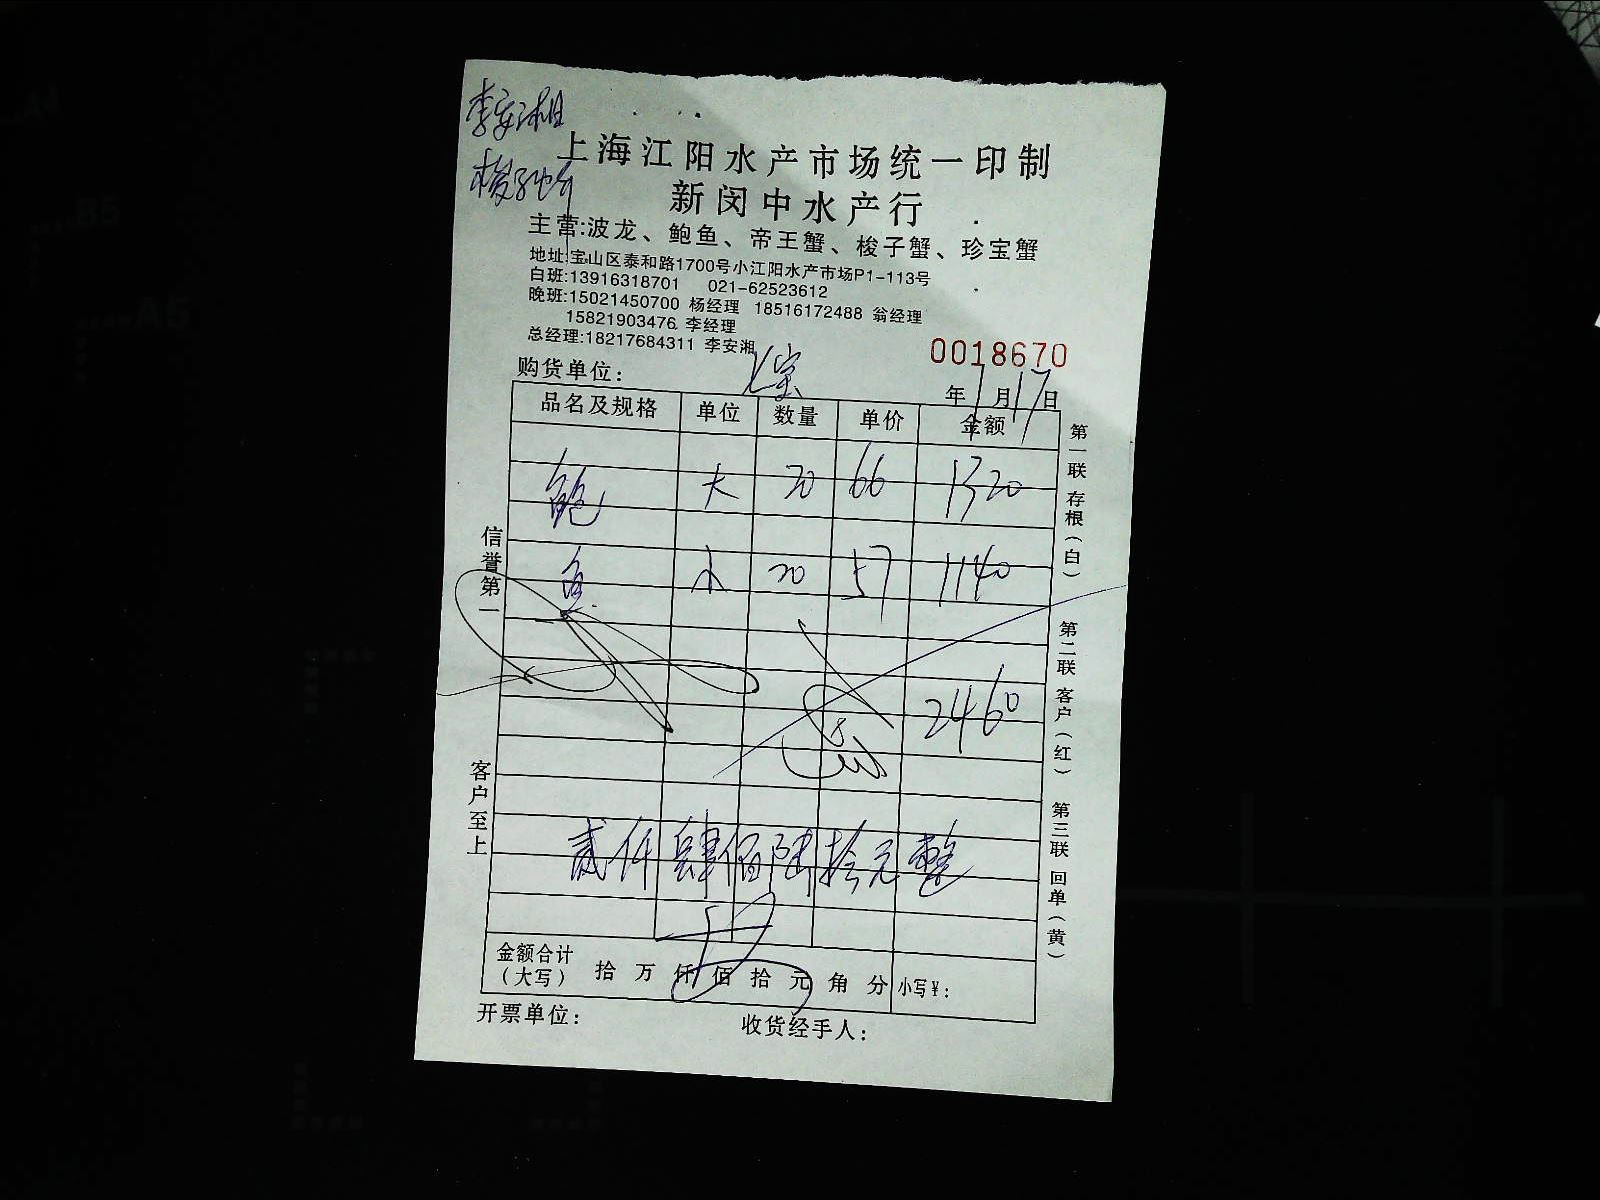 李安湘
上海江阳水产市场统一印制
梭子蟹
新闵中水产行
主营:波龙、鲍鱼、帝王蟹、梭子蟹、珍宝蟹
地址:宝山区泰和路1700号小江阳水产市场P1-113号
白班:13916318701 021-62523612
晚班:15021450700 杨经理 18516172488 翁经理
15821903476 李经理
总经理:18217684311 李安湘
0018670
购货单位:
年1月17日
品名及规格 单位 数量 单价 金额
鲍 大 20 66 1320
鱼 小 20 57 1140
2460
贰仟肆佰陆拾元整
金额合计(大写) 拾 万 仟 佰 拾 元 角 分 小写¥:
开票单位: 收货经手人:
信誉第一
客户至上
第一联 存根(白)
第二联 客户(红)
第三联 回单(黄)